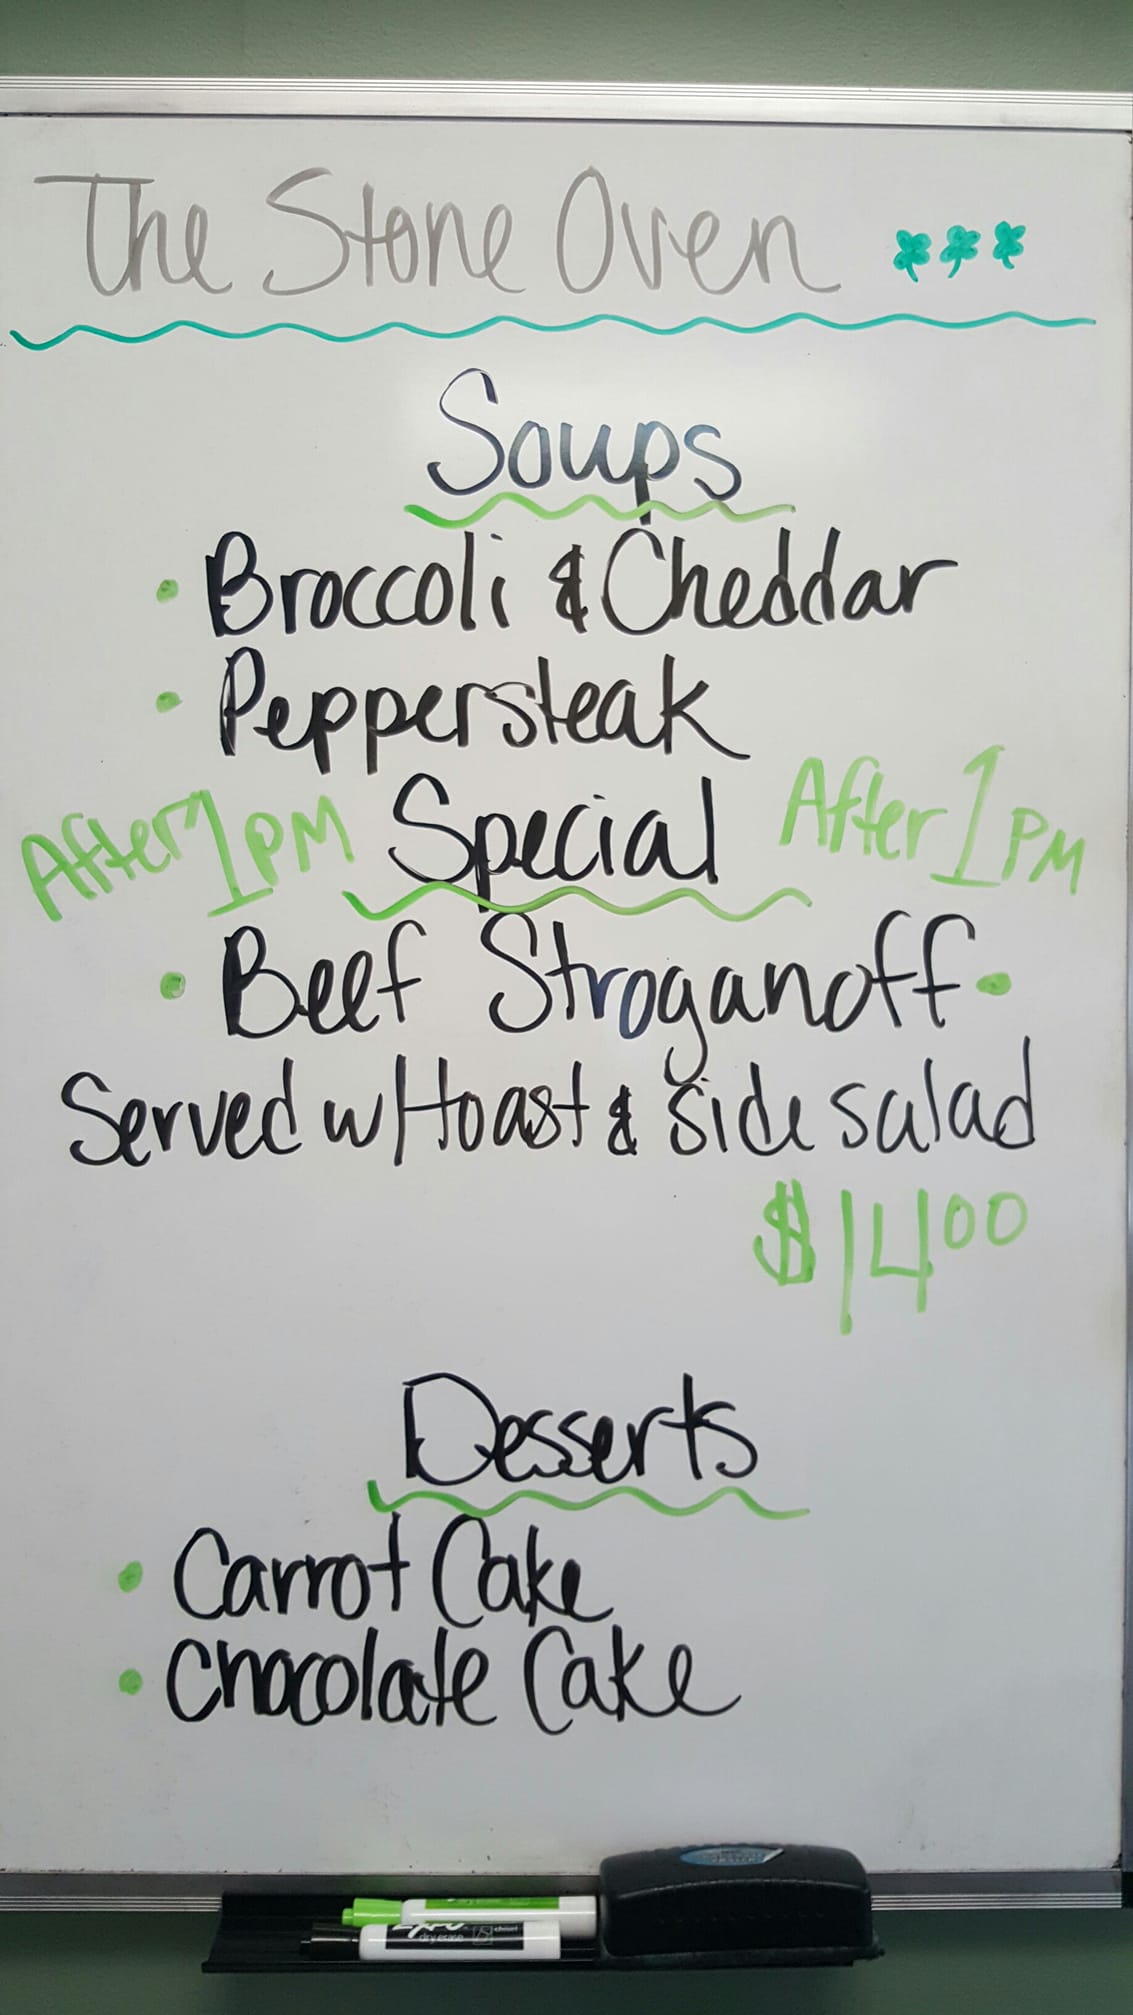 The Stone Oven
Soups
• Broccoli & Cheddar
• Peppersteak
After 1 PM Special After 1 PM
• Beef Stroganoff •
Served w/ toast & side salad
$1400
Desserts
• Carrot Cake
• Chocolate Cake
EXPO
dry erase chisel